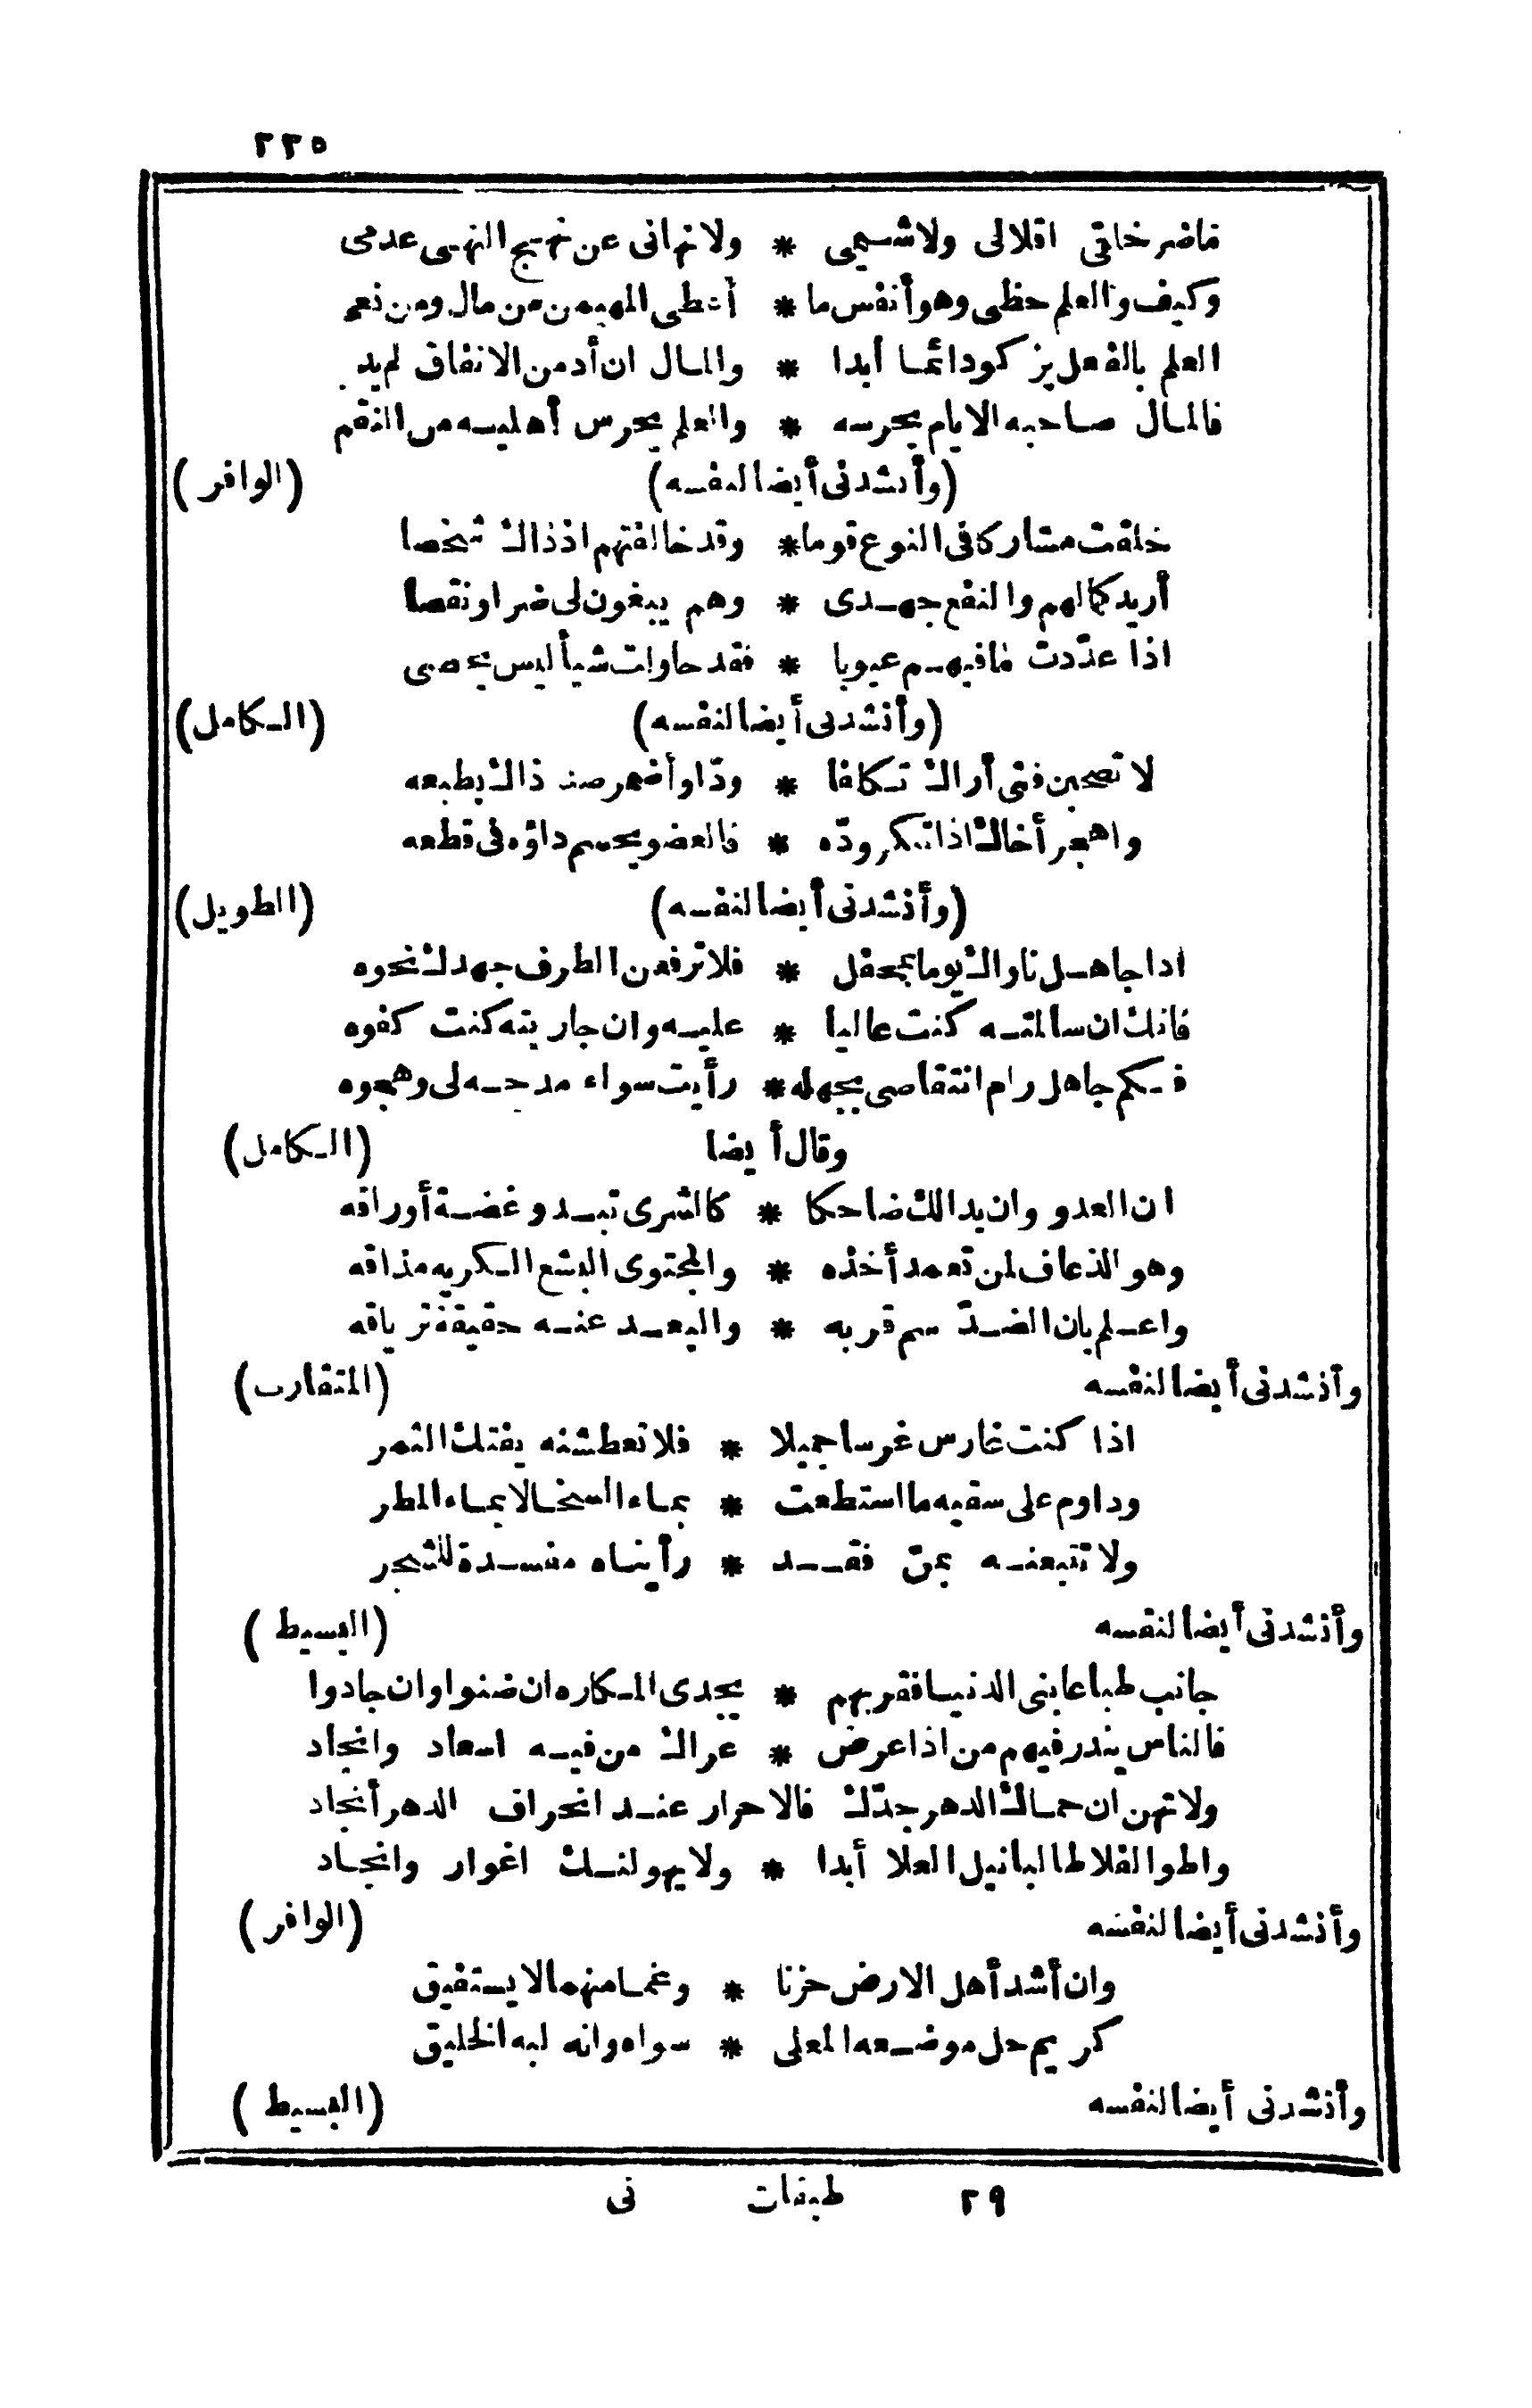 ٢٢٥
فاضر خلقي اقلالى ولا شيمى * ولا نهانى عن نهج النهى عدمى
وكيف والعلم حظى وهو أنفس ما * أعطى المهيمن من مال ومن نعم
العلم بالفعل يزكو دائما أبدا * والمال ان أدمن الانفاق لم يد
فالمال صاحبه الايام يحرسه * والعلم يحرس أهليه من النقم
(وأنشدنى أيضا لنفسه) (الوافر)
خلقت مشاركا فى النوع قوما * وقد خالفتهم اذ ذاك شخصا
أريد كمالهم والنفع جهدى * وهم يبغون لى ضرا ونقصا
اذا عدّدت ما فيهم عيوبا * فقد حاولت شيأ ليس يحصى
(وأنشدنى أيضا لنفسه) (الكامل)
لا تصحبن فتى أراك تكلفا * ودّا وأضمر ضد ذاك بطبعه
واهجر أخاك اذا تنكر ودّه * فالعضو يحسم داؤه فى قطعه
(وأنشدنى أيضا لنفسه) (الطويل)
اذا جاهل ناواك يوما بمحفل * فلا ترفعن الطرف جهدك نحوه
فانك ان سالمته كنت عاليا * عليه وان جاريته كنت كفوه
فكم جاهل رام انتقاصى بجهله * رأيت سواء مدحه لى وهجوه
وقال أيضا (الكامل)
ان العدو وان بدا لك ضاحكا * كالشرى تبدو غضة أوراقه
وهو الذعاف لمن تعمد أخذه * والمجتوى البشع الكريه مذاقه
واعلم بان الضدّ سم قربه * والبعد عنه حقيقة ترياقه
وأنشدنى أيضا لنفسه (المتقارب)
اذا كنت غارس غرسا جميلا * فلا تعطشنه يفتك الثمر
وداوم على سقيه ما استطعت * بماء السخا لا بماء المطر
ولا تتبعنه بمنّ فقد * رأيناه مفسدة للشجر
وأنشدنى أيضا لنفسه (البسيط)
جانب طباعا بنى الدنيا فقربهم * يجدى المكاره ان ضنوا وان جادوا
فالناس يندر فيهم من اذا عرض * عراك من فيه اسعاد وانجاد
ولا تهن ان حماك الدهر جدّك فالاحرار عند انحراف الدهر أنجاد
واطو الفلا طالبا نيل العلا أبدا * ولا يهولنك اغوار وانجاد
وأنشدنى أيضا لنفسه (الوافر)
وان أشد أهل الارض حزنا * وغما منهما لا يستفيق
كريم حل موضعه المعلى * سواه وانه لبه الخليق
وأنشدنى أيضا لنفسه (البسيط)
٢٩ طبقات نى